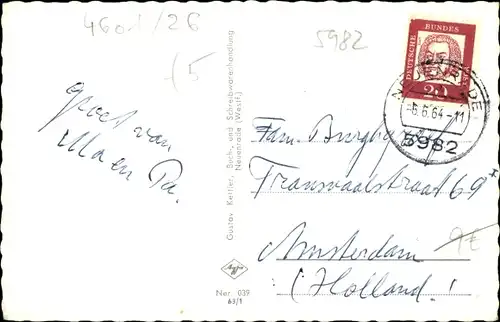 4601/26
5982
(5
DEUTSCHE BUNDES
20
-6.6.64-11
5982
groet van
Ma en Pa.
Gustav Kertler, Buch-, und Schreibwarenhandlung
Neuenrade (Westf.)
Fam.
Transvaalstraat 69
Amsterdam
(Holland)
9€
Agfa
Ner. 039
63/1